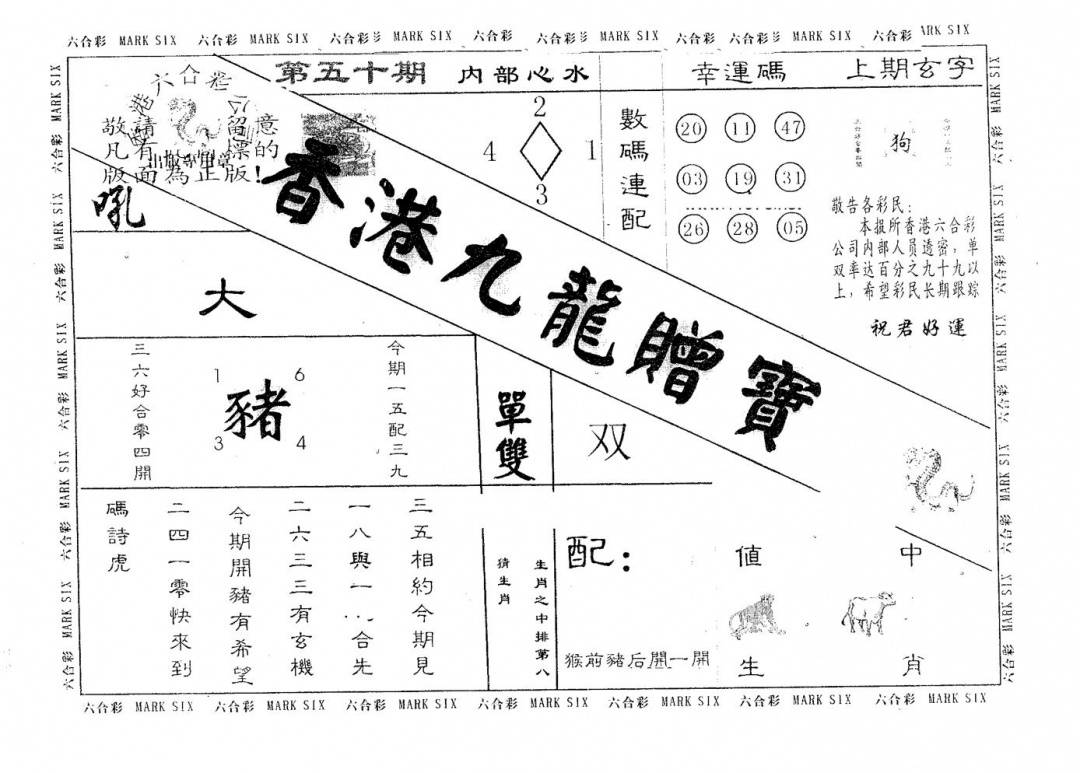 六合彩 MARK SIX 六合彩 MARK SIX 六合彩 MARK SIX 六合彩 六合彩 MARK SIX 六合彩 六合彩 MARK SIX 六合彩 MARK SIX
第五十期 內部心水 幸運碼 上期玄字
六合彩
敬請留意
凡有標的
版面為正版!
吼
香港九龍贈寶
2
4 1
3
數碼連配
20 11 47
03 19 31
26 28 05
狗
敬告各彩民:
本报所香港六合彩
公司内部人员透密,单
双率达百分之九十九以
上,希望彩民长期跟踪
祝君好運
大
三六好合零四開
1 6
豬
3 4
今期一五配三九
單雙
双
三五相約今期見
一八與一..合先
二六三三有玄機
今期開豬有希望
二四一零快來到
碼詩虎
生肖之中排第八
猜生肖
配:
猴前豬后開一開
值 中
生 肖
六合彩 MARK SIX 六合彩 MARK SIX 六合彩 MARK SIX 六合彩 MARK SIX 六合彩 MARK SIX 六合彩 MARK SIX 六合彩 MARK SIX
六合彩 MARK SIX 六合彩 MARK SIX 六合彩 MARK SIX 六合彩 MARK SIX 六合彩 MARK SIX
六合彩 MARK SIX 六合彩 MARK SIX 六合彩 MARK SIX 六合彩 MARK SIX 六合彩 MARK SIX